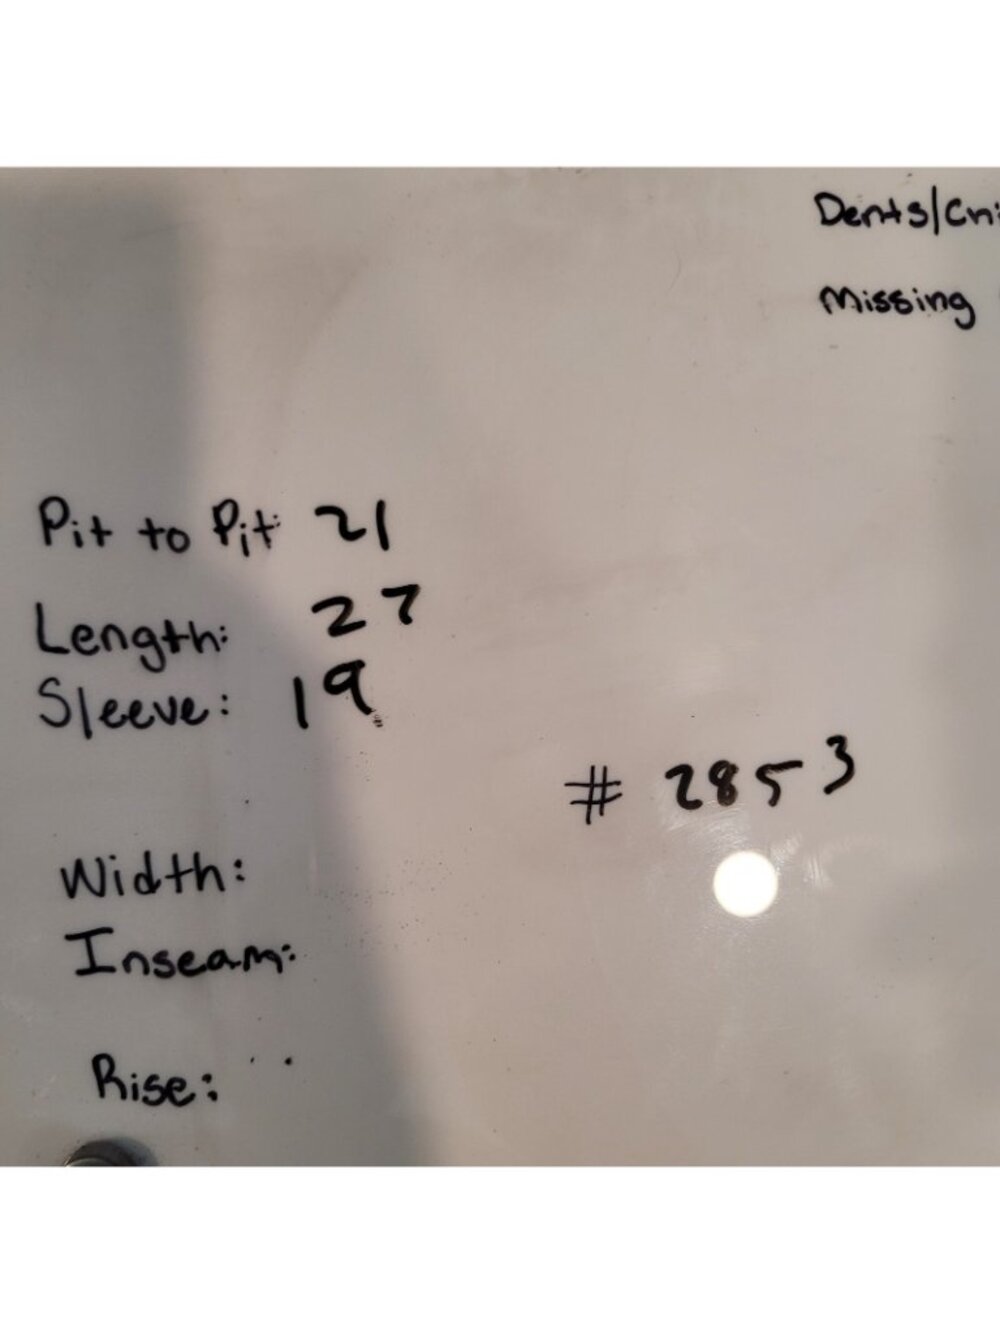 Dents/Chi
Missing
Pit to Pit: 21
Length: 27
Sleeve: 19
# 2853
Width:
Inseam:
Rise: